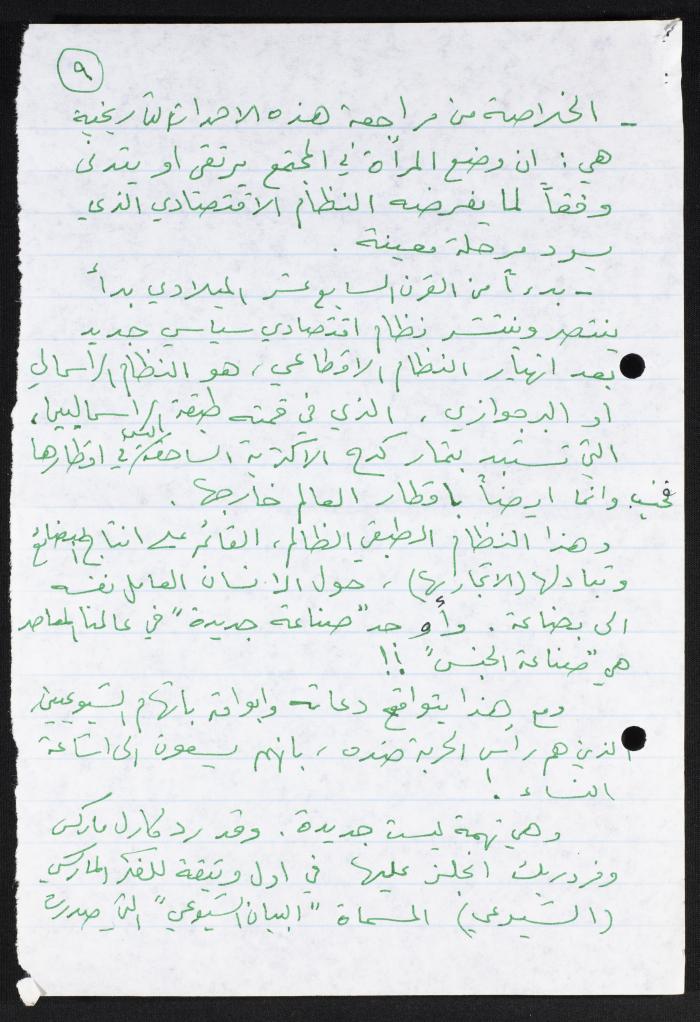 ٩
- الخلاصة من مراجعة هذه الاحداث التاريخية
هي: ان وضع المرأة في المجتمع يرتقي او يتدنى
وفقاً لما يفرضه النظام الاقتصادي الذي
يسود مرحلة معينة .
- بدءاً من القرن السابع عشر الميلادي بدأ
ينتصر وينتشر نظام اقتصادي سياسي جديد
بعد انهيار النظام الاقطاعي، هو النظام الرأسمالي
او البرجوازي ، الذي في قمته طبقة الرأسماليين،
التي تستبد بثمار كدح الاكثرية الساحقة ليس في اقطارها
فحسب وانما ايضاً باقطار العالم خارجها .
وهذا النظام الطبقي الظالم، القائم على انتاج البضائع
وتبادلها (الاتجار بها) ، حول الانسان العامل نفسه
الى بضاعة . وأوجد "صناعة جديدة" في عالمنا المعاصر
هي "صناعة الجنس" !!
ومع هذا يتواقح دعاته وابواقه باتهام الشيوعيين،
الذين هم رأس الحربة ضده ، بانهم يسعون الى اشاعة
النساء !
وهي تهمة ليست جديدة . وقد رد كارل ماركس
وفردريك انجلز عليها في اول وثيقة للفكر الماركسي
(الشيوعي) المسماة "البيان الشيوعي" التي صدرت